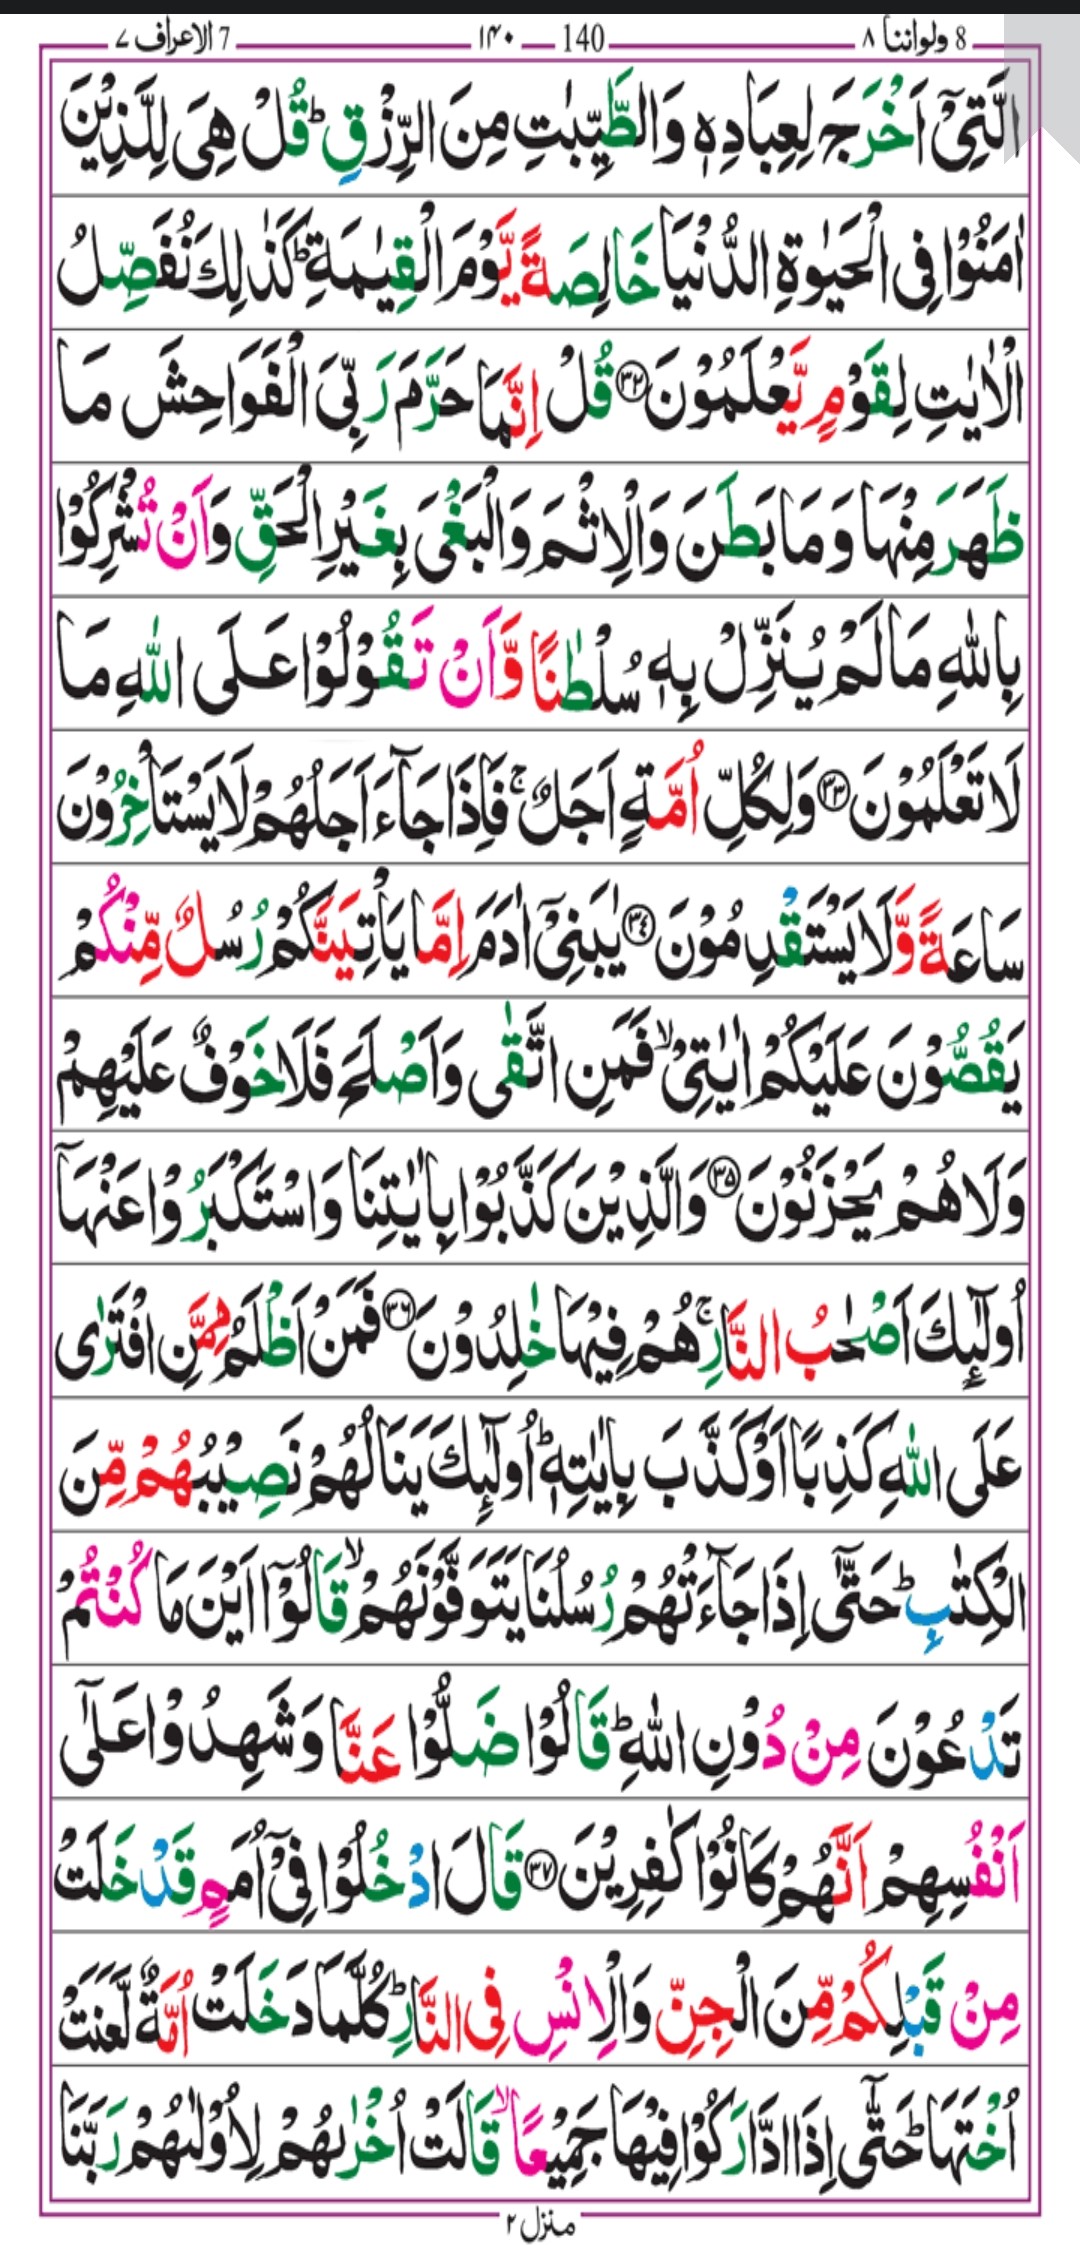 7 الاعراف ٧ 140 ١٤٠ 8 ولواننا ٨
الَّتِیْۤ اَخْرَجَ لِعِبَادِهٖ وَالطَّیِّبٰتِ مِنَ الرِّزْقِ ؕ قُلْ هِیَ لِلَّذِیْنَ
اٰمَنُوْا فِی الْحَیٰوةِ الدُّنْیَا خَالِصَةً یَّوْمَ الْقِیٰمَةِ ؕ كَذٰلِكَ نُفَصِّلُ
الْاٰیٰتِ لِقَوْمٍ یَّعْلَمُوْنَ ۝۳۲ قُلْ اِنَّمَا حَرَّمَ رَبِّیَ الْفَوَاحِشَ مَا
ظَهَرَ مِنْهَا وَمَا بَطَنَ وَالْاِثْمَ وَالْبَغْیَ بِغَیْرِ الْحَقِّ وَاَنْ تُشْرِكُوْا
بِاللّٰهِ مَا لَمْ یُنَزِّلْ بِهٖ سُلْطٰنًا وَّاَنْ تَقُوْلُوْا عَلَی اللّٰهِ مَا
لَا تَعْلَمُوْنَ ۝۳۳ وَلِكُلِّ اُمَّةٍ اَجَلٌ ۚ فَاِذَا جَآءَ اَجَلُهُمْ لَا یَسْتَاْخِرُوْنَ
سَاعَةً وَّلَا یَسْتَقْدِمُوْنَ ۝۳٤ یٰبَنِیْۤ اٰدَمَ اِمَّا یَاْتِیَنَّكُمْ رُسُلٌ مِّنْكُمْ
یَقُصُّوْنَ عَلَیْكُمْ اٰیٰتِیْ ۙ فَمَنِ اتَّقٰی وَاَصْلَحَ فَلَا خَوْفٌ عَلَیْهِمْ
وَلَا هُمْ یَحْزَنُوْنَ ۝۳۵ وَالَّذِیْنَ كَذَّبُوْا بِاٰیٰتِنَا وَاسْتَكْبَرُوْا عَنْهَاۤ
اُولٰٓىِٕكَ اَصْحٰبُ النَّارِ ۚ هُمْ فِیْهَا خٰلِدُوْنَ ۝۳۶ فَمَنْ اَظْلَمُ مِمَّنِ افْتَرٰی
عَلَی اللّٰهِ كَذِبًا اَوْ كَذَّبَ بِاٰیٰتِهٖ ؕ اُولٰٓىِٕكَ یَنَالُهُمْ نَصِیْبُهُمْ مِّنَ
الْكِتٰبِ ؕ حَتّٰۤی اِذَا جَآءَتْهُمْ رُسُلُنَا یَتَوَفَّوْنَهُمْ ۙ قَالُوْۤا اَیْنَ مَا كُنْتُمْ
تَدْعُوْنَ مِنْ دُوْنِ اللّٰهِ ؕ قَالُوْا ضَلُّوْا عَنَّا وَشَهِدُوْا عَلٰۤی
اَنْفُسِهِمْ اَنَّهُمْ كَانُوْا كٰفِرِیْنَ ۝۳۷ قَالَ ادْخُلُوْا فِیْۤ اُمَمٍ قَدْ خَلَتْ
مِنْ قَبْلِكُمْ مِّنَ الْجِنِّ وَالْاِنْسِ فِی النَّارِ ؕ كُلَّمَا دَخَلَتْ اُمَّةٌ لَّعَنَتْ
اُخْتَهَا ؕ حَتّٰۤی اِذَا ادَّارَكُوْا فِیْهَا جَمِیْعًا ۙ قَالَتْ اُخْرٰىهُمْ لِاُوْلٰىهُمْ رَبَّنَا
منزل ٢